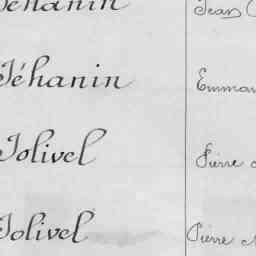 Jéhanin Jean
Jéhanin Emman
Jolivel Pierre
Jolivel Pierre